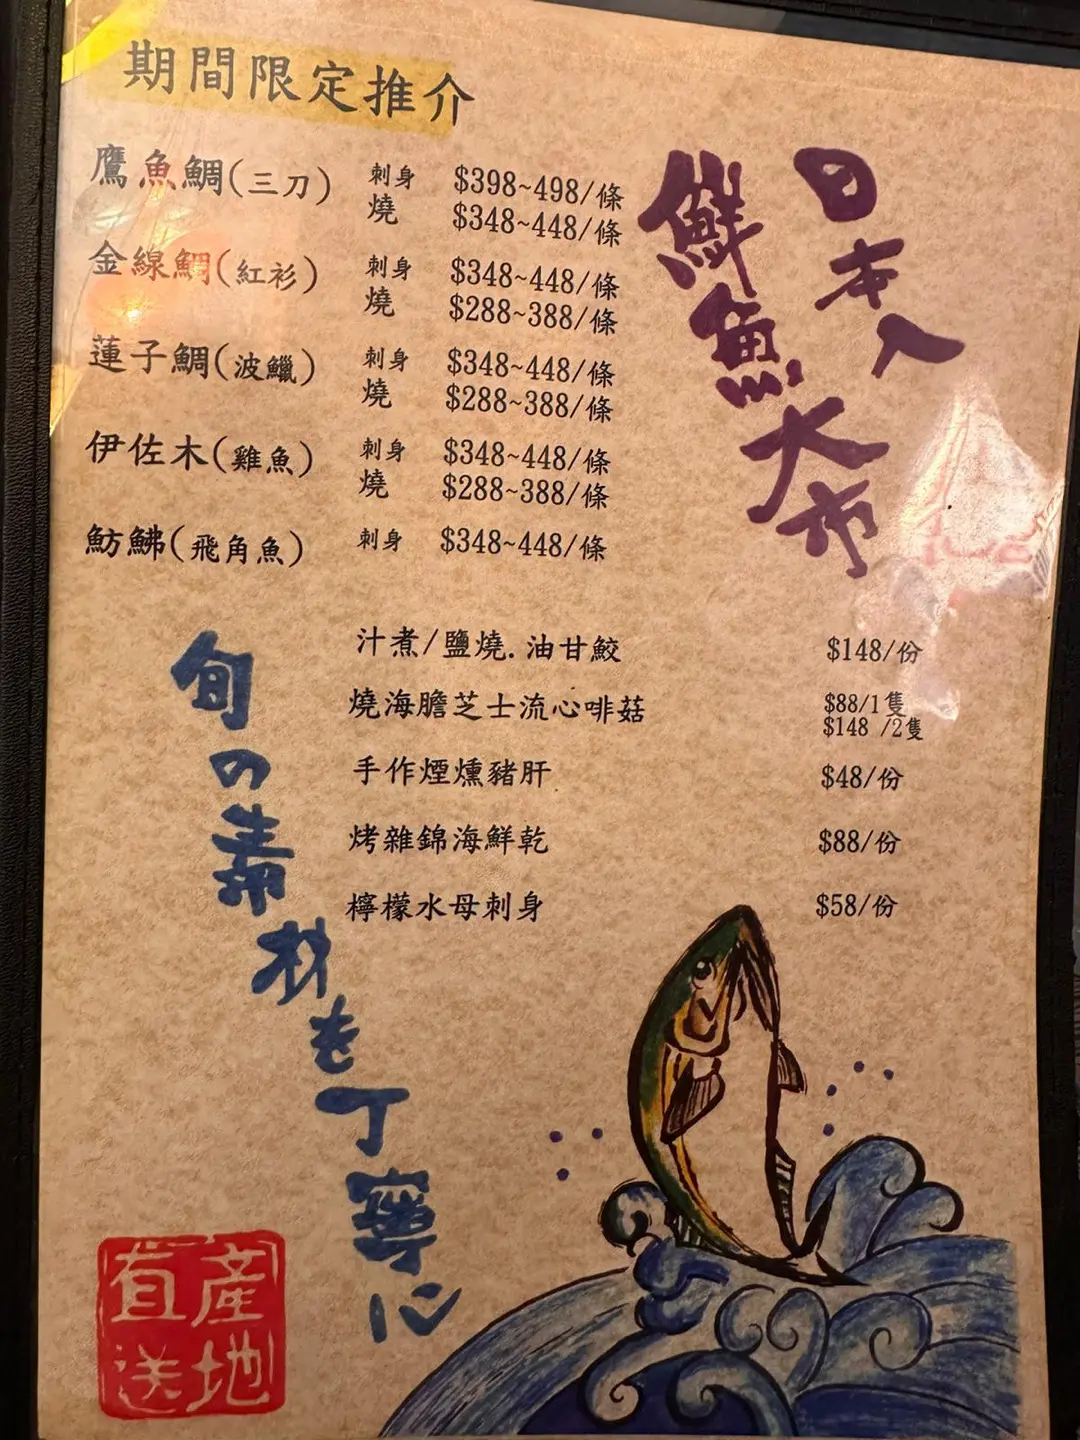 期間限定推介
鷹魚鯛(三刀) 刺身 $398~498/條
燒 $348~448/條
金線鯛(紅衫) 刺身 $348~448/條
燒 $288~388/條
蓮子鯛(波鱲) 刺身 $348~448/條
燒 $288~388/條
伊佐木(雞魚) 刺身 $348~448/條
燒 $288~388/條
魴鮄(飛角魚) 刺身 $348~448/條
日本人
鮮魚大市
汁煮/鹽燒.油甘鮫 $148/份
燒海膽芝士流心啡菇 $88/1隻
$148 /2隻
手作煙燻豬肝 $48/份
烤雜錦海鮮乾 $88/份
檸檬水母刺身 $58/份
旬の素材を丁寧に
產地
直送